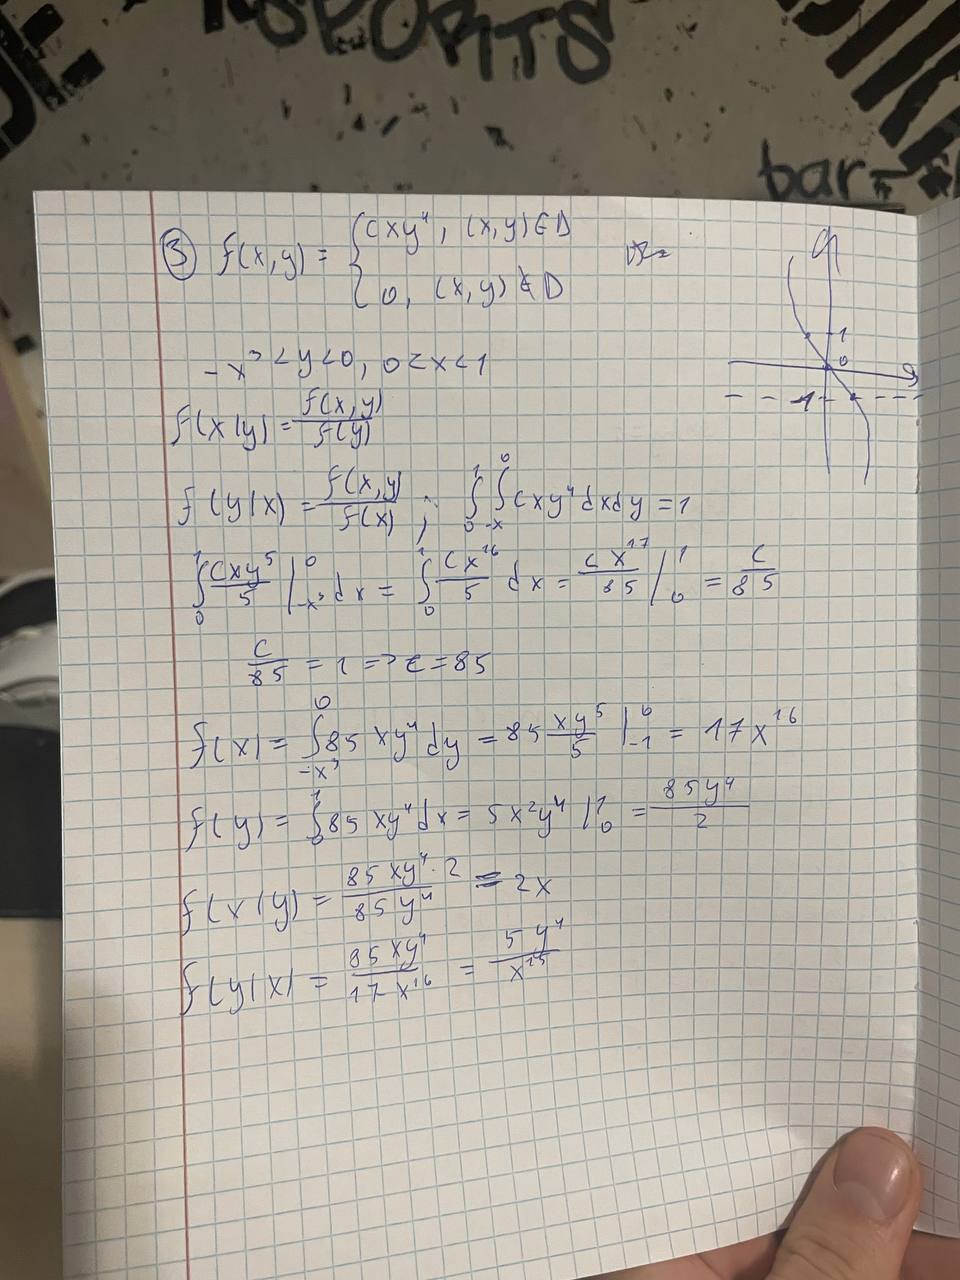 SPORTS
bar
③ f(x,y) = { cxy⁴, (x,y)∈D
0, (x,y)∉D
-x³ < y < 0, 0 < x < 1
f(x|y) = f(x,y) / f(y)
f(y|x) = f(x,y) / f(x) ; ∫₀¹ ∫₋ₓ⁰ cxy⁴ dxdy = 1
∫₀¹ cxy⁵/5 |₋ₓ³⁰ dx = ∫₀¹ cx¹⁶/5 dx = cx¹⁷/85 |₀¹ = c/85
c/85 = 1 => c = 85
f(x) = ∫₋ₓ³⁰ 85xy⁴dy = 85 xy⁵/5 |₋₁⁰ = 17x¹⁶
f(y) = ∫₀¹ 85xy⁴dx = 5x²y⁴ |₀¹ = 85y⁴/2
f(x|y) = 85xy⁴·2 / 85y⁴ = 2x
f(y|x) = 85xy⁴ / 17x¹⁶ = 5y⁴ / x¹⁵
1
0
-1